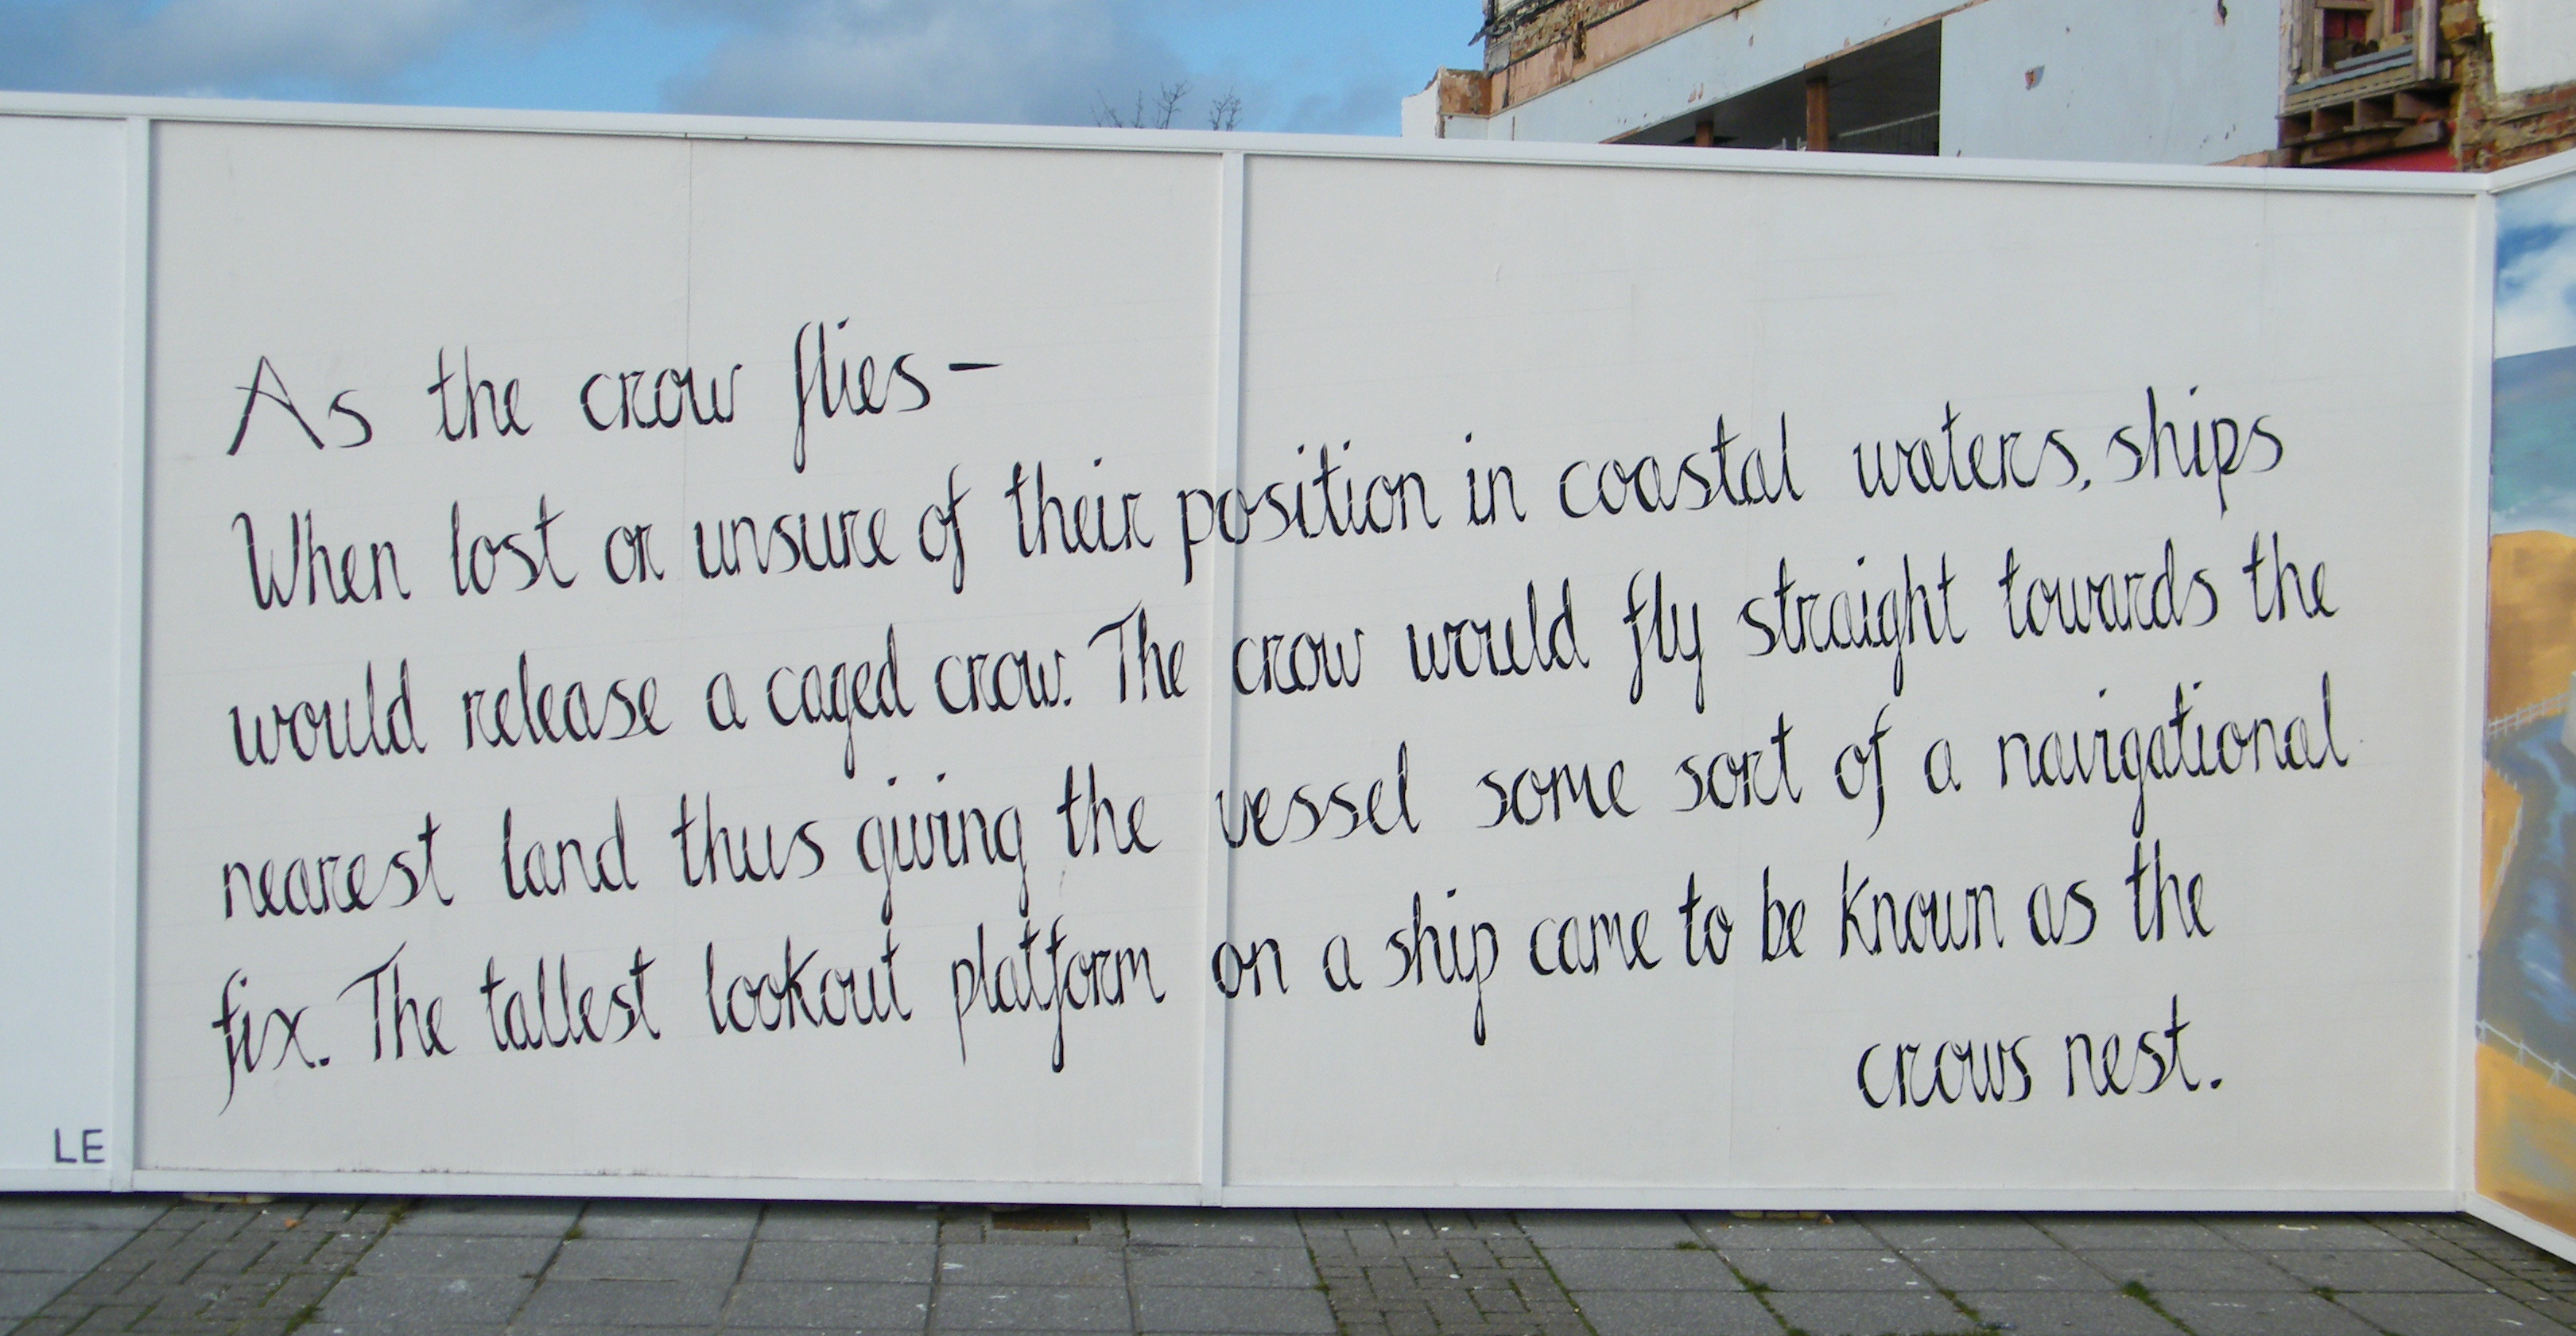 As the crow flies -
When lost or unsure of their position in coastal waters, ships
would release a caged crow. The crow would fly straight towards the
nearest land thus giving the vessel some sort of a navigational
fix. The tallest lookout platform on a ship came to be known as the
crows nest.
LE